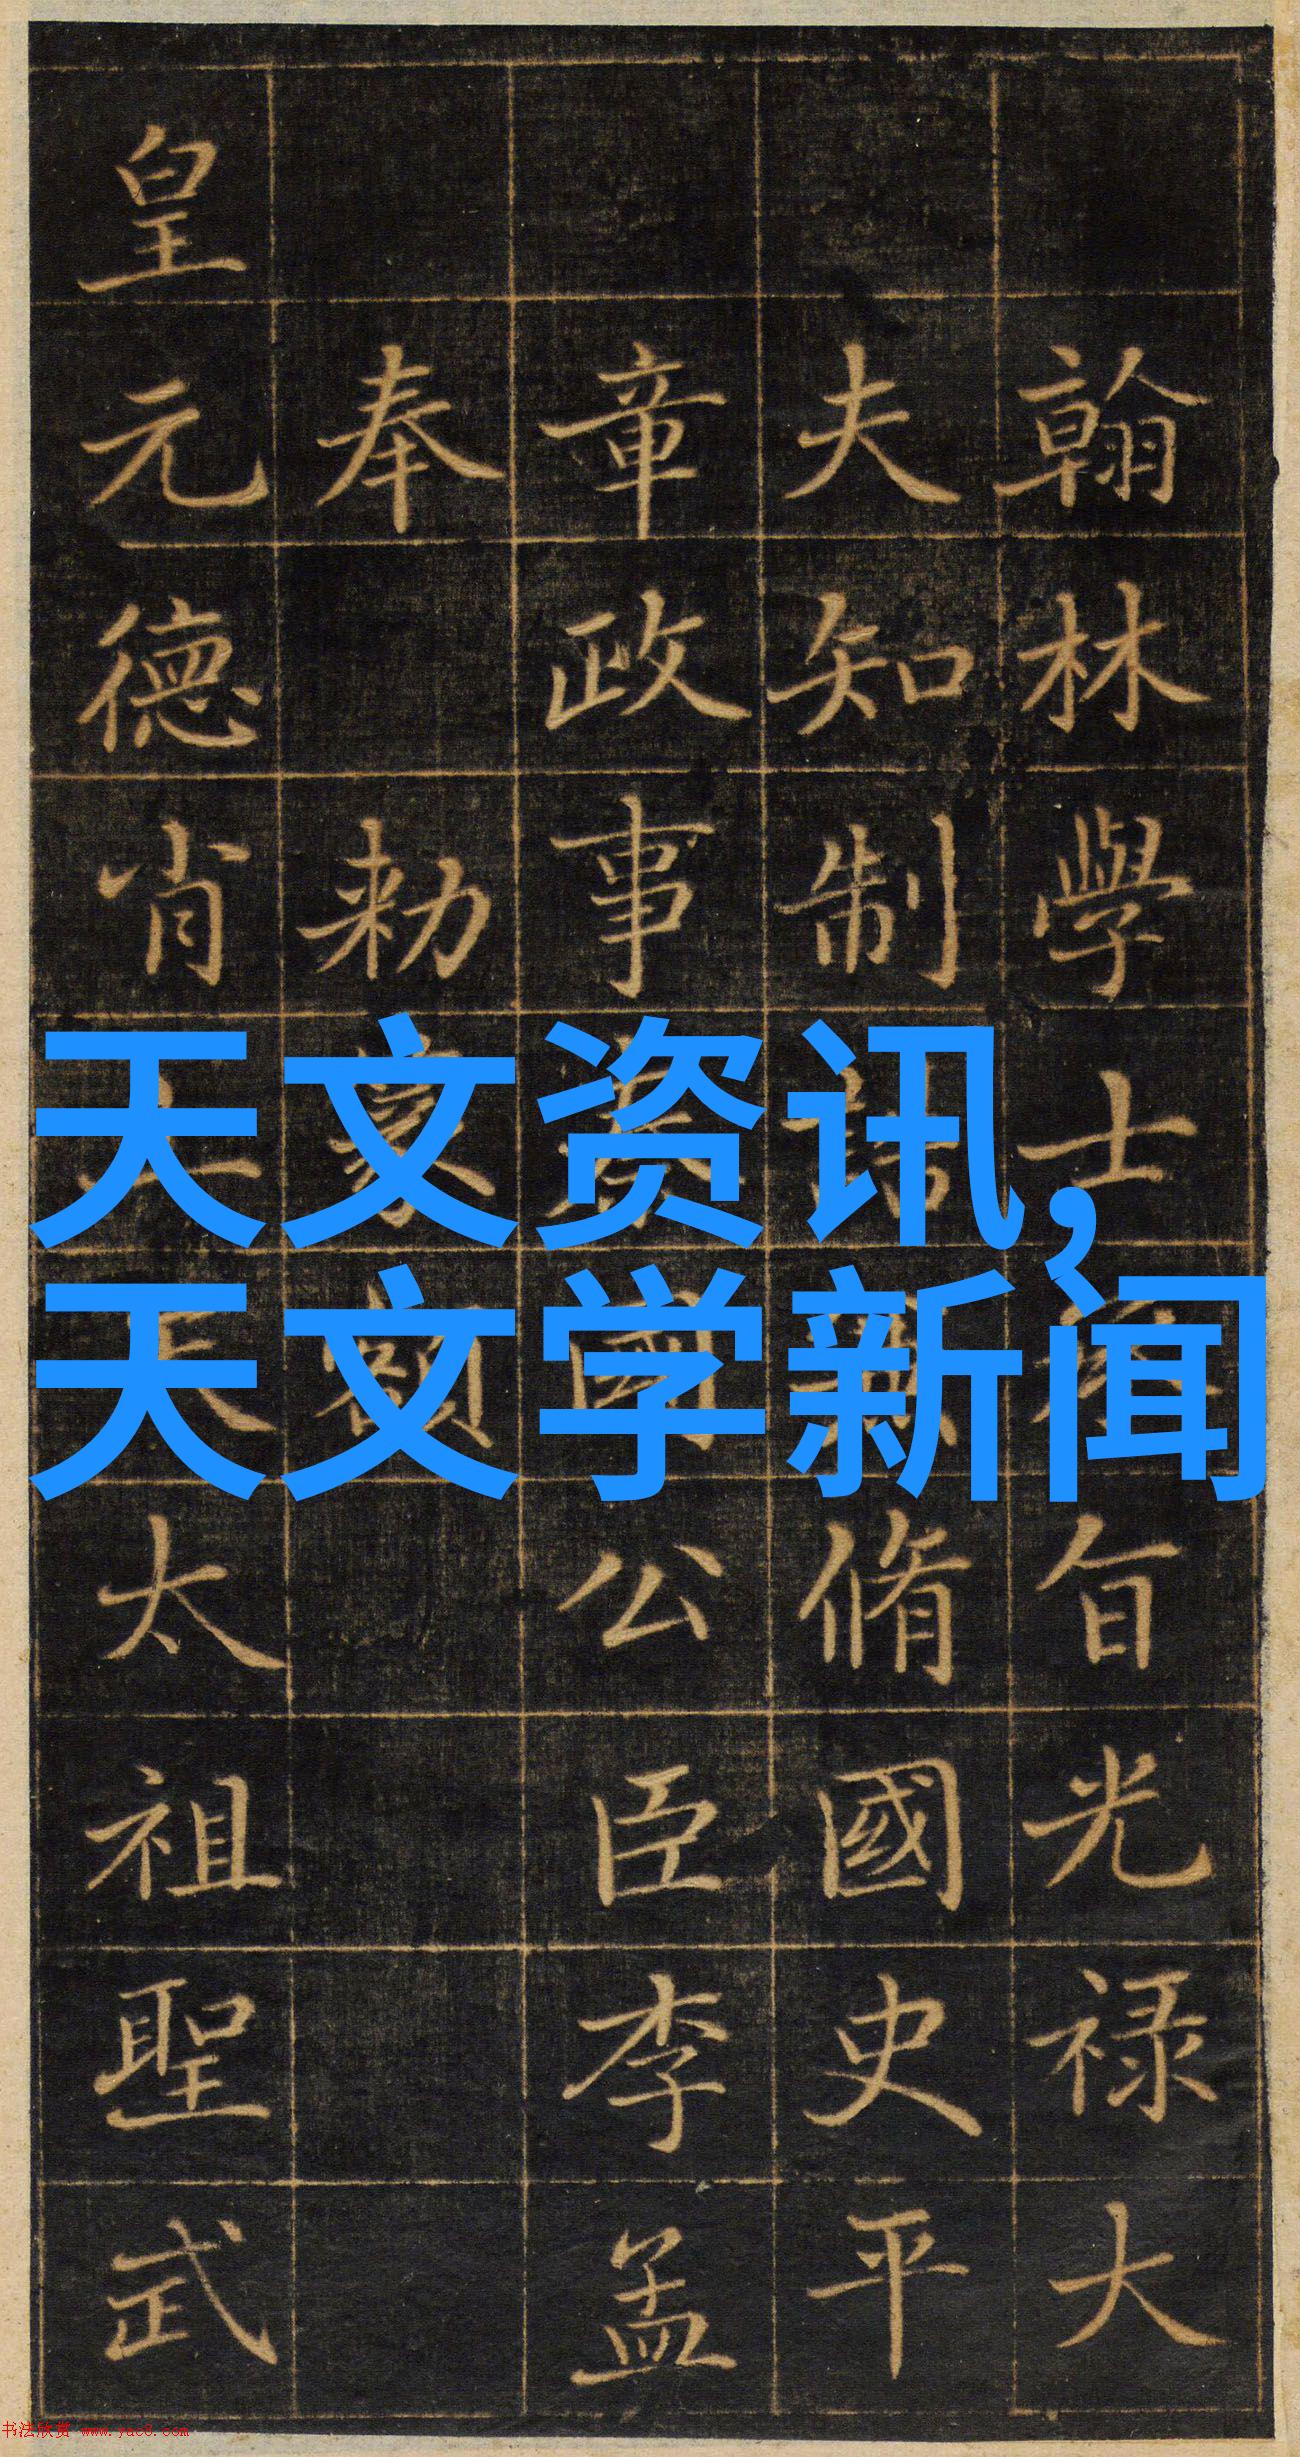 翰林學士
旨光禄大
夫知制
脩國史平
章政事
公臣李孟
奉
勅
皇元德肖
太祖聖武
天文资讯,
天文学新闻
书法欣赏 www.yac8.com